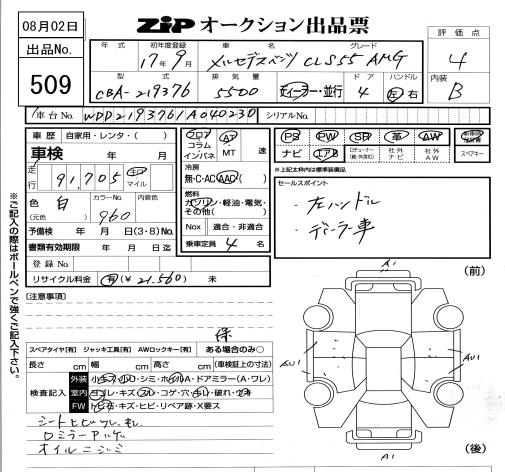 08月02日
ZIP オークション出品票
評価点
4
内装
B
出品No.
509
年式 初年度登録 車名 グレード
17年9月 メルセデスベンツ CLS55 AMG
型式 排気量 ドア ハンドル
CBA-219376 5500 ディーラー・並行 4 左 右
車台No. WDD2193761A040230 シリアルNo.
車歴 自家用・レンタ・( )
車検 年 月
走行 91,705 キロ マイル
色 (元色) 白 カラーNo. 960 内装色
予備検 年 月 日(3・8)No.
書類有効期限 年 月 日迄
登録No.
リサイクル料金 有(¥ 21,560) 未
フロア コラム インパネ AT・MT 速
冷房 無・C・AC・AAC
燃料 ガソリン・軽油・電気・その他( )
Nox 適合・非適合
乗車定員 4 名
PS PW SR 革 AW
ナビ エアB 社外ナビ 社外AW スペアキー
※上記太枠内は標準装備品
セールスポイント
・左ハンドル
・ディーラー車
[注意事項]
保
スペアタイヤ[有] ジャッキ工具[有] AWロックキー[有] ある場合のみ○
長さ cm 幅 cm 高さ cm (車検証上の寸法)
検査記入
外装
室内 ヨゴレ・キズ・スレ・コゲ・穴・キレ・破れ・
FW トビ石・キズ・ヒビ・リペア跡・X要ス
オイルニジミ
(前)
A1
AU1
AU1
A1
(後)
※ご記入の際はボールペンで強くご記入下さい。